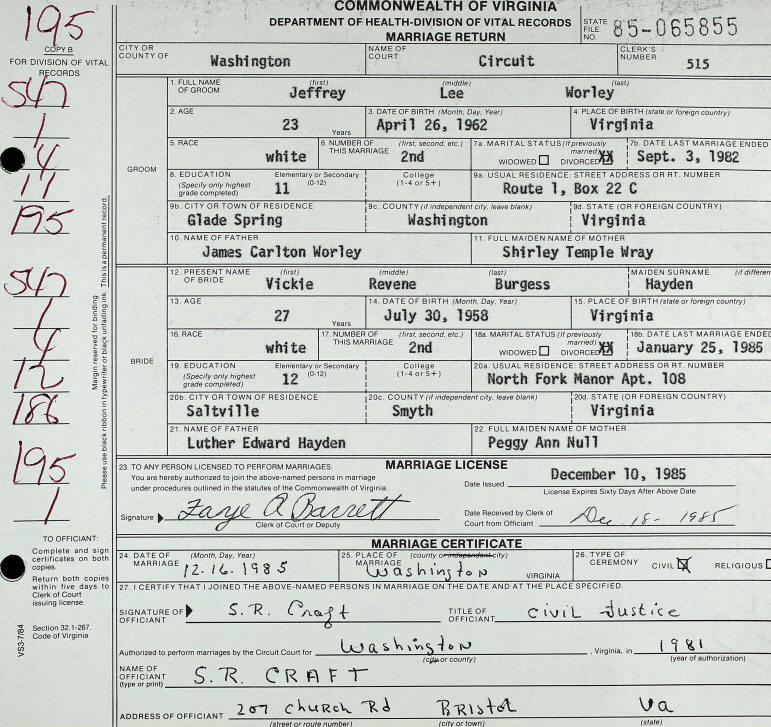 COMMONWEALTH OF VIRGINIA
DEPARTMENT OF HEALTH-DIVISION OF VITAL RECORDS
MARRIAGE RETURN
STATE FILE NO. 85-065855
195
COPY B
FOR DIVISION OF VITAL RECORDS
CITY OR COUNTY OF Washington NAME OF COURT Circuit CLERK'S NUMBER 515
GROOM
1. FULL NAME OF GROOM (first) Jeffrey (middle) Lee (last) Worley
2. AGE 23 Years 3. DATE OF BIRTH (Month, Day, Year) April 26, 1962 4. PLACE OF BIRTH (state or foreign country) Virginia
5. RACE white 6. NUMBER OF THIS MARRIAGE (first, second, etc.) 2nd 7a. MARITAL STATUS (If previously married) WIDOWED DIVORCED XX 7b. DATE LAST MARRIAGE ENDED Sept. 3, 1982
8. EDUCATION (Specify only highest grade completed) Elementary or Secondary (0-12) 11 College (1-4 or 5+) 9a. USUAL RESIDENCE: STREET ADDRESS OR RT. NUMBER Route 1, Box 22 C
9b. CITY OR TOWN OF RESIDENCE Glade Spring 9c. COUNTY (if independent city, leave blank) Washington 9d. STATE (OR FOREIGN COUNTRY) Virginia
10. NAME OF FATHER James Carlton Worley 11. FULL MAIDEN NAME OF MOTHER Shirley Temple Wray
BRIDE
12. PRESENT NAME OF BRIDE (first) Vickie (middle) Revene (last) Burgess MAIDEN SURNAME (if differen Hayden
13. AGE 27 Years 14. DATE OF BIRTH (Month, Day, Year) July 30, 1958 15. PLACE OF BIRTH (state or foreign country) Virginia
16. RACE white 17. NUMBER OF THIS MARRIAGE (first, second, etc.) 2nd 18a. MARITAL STATUS (If previously married) WIDOWED DIVORCED XX 18b. DATE LAST MARRIAGE ENDED January 25, 1985
19. EDUCATION (Specify only highest grade completed) Elementary or Secondary (0-12) 12 College (1-4 or 5+) 20a. USUAL RESIDENCE: STREET ADDRESS OR RT. NUMBER North Fork Manor Apt. 108
20b. CITY OR TOWN OF RESIDENCE Saltville 20c. COUNTY (if independent city, leave blank) Smyth 20d. STATE (OR FOREIGN COUNTRY) Virginia
21. NAME OF FATHER Luther Edward Hayden 22. FULL MAIDEN NAME OF MOTHER Peggy Ann Null
547
1
4
11
195
547
1
4
12
186
195
1
Margin reserved for binding This is a permanent record.
Please use black ribbon in typewriter or black unfading ink.
23. TO ANY PERSON LICENSED TO PERFORM MARRIAGES: MARRIAGE LICENSE
You are hereby authorized to join the above-named persons in marriage
under procedures outlined in the statutes of the Commonwealth of Virginia.
Date Issued December 10, 1985
License Expires Sixty Days After Above Date
Signature Faye A Barrett
Clerk of Court or Deputy
Date Received by Clerk of Court from Official Dec 18- 1985
MARRIAGE CERTIFICATE
24. DATE OF MARRIAGE (Month, Day, Year) 12-16-1985 25. PLACE OF MARRIAGE (county or independent city) Washington VIRGINIA 26. TYPE OF CEREMONY CIVIL X RELIGIOUS
27. I CERTIFY THAT I JOINED THE ABOVE-NAMED PERSONS IN MARRIAGE ON THE DATE AND AT THE PLACE SPECIFIED.
SIGNATURE OF OFFICIANT S.R. Craft TITLE OF OFFICIANT Civil Justice
Authorized to perform marriages by the Circuit Court for Washington , Virginia, in 1981
(city or county) (year of authorization)
NAME OF OFFICIANT (type or print) S. R. CRAFT
ADDRESS OF OFFICIANT 207 Church Rd Bristol Va
(street or route number) (city or town) (state)
TO OFFICIANT:
Complete and sign
certificates on both
copies.
Return both copies
within five days to
Clerk of Court
issuing license.
Section 32.1-267.
Code of Virginia
VS3-7/84